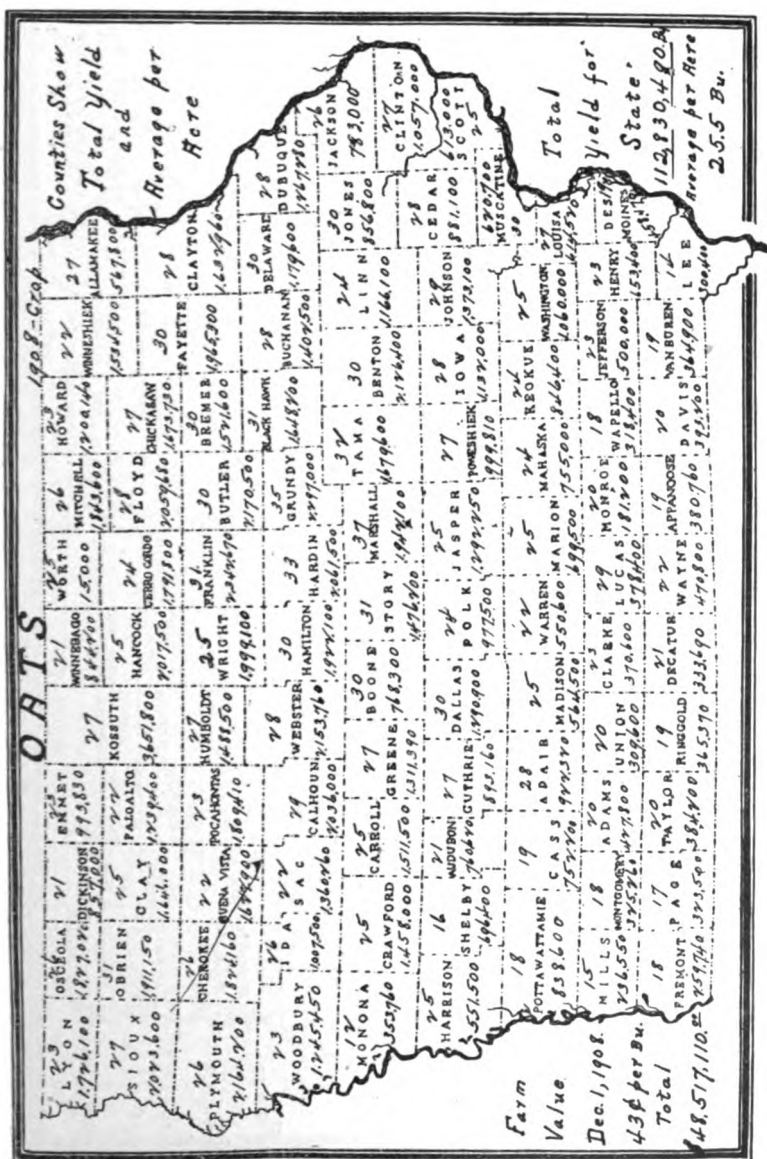 OATS
1908-Crop
Counties Show
Total Yield
and
Average per
Acre
23
LYON
1,726,100
26
OSCEOLA
21
DICKINSON
857,000
23
EMMET
993,830
27
KOSSUTH
3,651,800
21
WINNEBAGO
844,200
25
WORTH
26
MITCHELL
1,843,600
23
HOWARD
22
WINNESHIEK
1,534,500
27
ALLAMAKEE
567,800
27
SIOUX
2,023,600
31
OBRIEN
25
CLAY
22
PALO ALTO
1,239,600
25
HANCOCK
2,017,500
24
CERRO GORDO
1,791,800
28
FLOYD
2,059,680
27
CHICKASAW
1,673,730
26
PLYMOUTH
2,164,200
26
CHEROKEE
1,824,160
22
BUENA VISTA
23
POCAHONTAS
1,809,410
27
HUMBOLDT
1,488,500
25
WRIGHT
1,999,100
31
FRANKLIN
30
BUTLER
2,170,500
30
BREMER
1,521,600
30
FAYETTE
1,965,300
28
CLAYTON
23
WOODBURY
1,245,450
26
IDA
1,007,500
22
SAC
1,360,260
29
CALHOUN
2,036,000
28
WEBSTER
2,153,760
30
HAMILTON
1,924,100
33
HARDIN
2,061,500
35
GRUNDY
2,297,000
31
BLACK HAWK
1,648,200
28
BUCHANAN
1,402,500
30
DELAWARE
1,179,600
28
DUBUQUE
1,267,280
12
MONONA
353,760
25
CRAWFORD
1,458,000
25
CARROLL
1,511,500
27
GREENE
1,311,390
30
BOONE
768,300
31
STORY
1,476,200
37
MARSHALL
32
TAMA
1,679,600
30
BENTON
2,126,400
24
LINN
1,166,100
30
JONES
856,800
26
JACKSON
783,000
27
CLINTON
1,057,000
25
HARRISON
551,500
16
SHELBY
696,400
21
AUDUBON
27
GUTHRIE
893,160
30
DALLAS
1,290,900
24
POLK
977,500
25
JASPER
1,292,250
27
POWESHIEK
999,810
28
IOWA
1,132,000
29
JOHNSON
1,373,100
28
CEDAR
881,100
SCOTT
25
620,700
MUSCATINE
30
18
POTTAWATTAMIE
838,600
19
CASS
752,200
28
ADAIR
922,320
25
MADISON
564,500
22
WARREN
550,600
25
MARION
699,500
24
MAHASKA
755,000
24
KEOKUK
846,400
25
WASHINGTON
1,060,000
27
LOUISA
15
MILLS
236,550
18
MONTGOMERY
325,260
20
ADAMS
427,800
20
UNION
309,600
23
CLARKE
370,600
29
LUCAS
378,400
20
MONROE
181,200
18
WAPELLO
318,400
23
JEFFERSON
500,000
23
HENRY
653,400
DES
MOINES
18
FREMONT
259,740
17
PAGE
323,590
20
TAYLOR
384,200
19
RINGGOLD
365,370
21
DECATUR
333,690
22
WAYNE
470,800
19
APPANOOSE
380,760
20
DAVIS
393,200
19
VAN BUREN
364,900
LEE
300,400
Farm
Value
Dec. 1, 1908.
43¢ per Bu.
Total
$48,517,110.00
Total
Yield for
State.
112,830,480 Bu
Average per Acre
25.5 Bu.